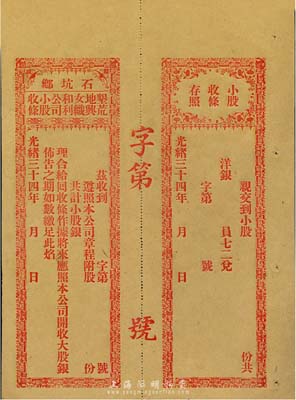 小股
收條
存照
親交到小股 份共
洋銀 員七二兌
字第 號
光緒三十四年 月 日
字第 號
石坑鄉
墾荒
地興
女織
和利
公司
小股
收條
茲收到 字第 號
遵照本公司章程附股 份
共計小股銀
理合給回收條作據將來應照本公司開收大股銀
佈告之期如數繳足此炤
光緒三十四年 月 日